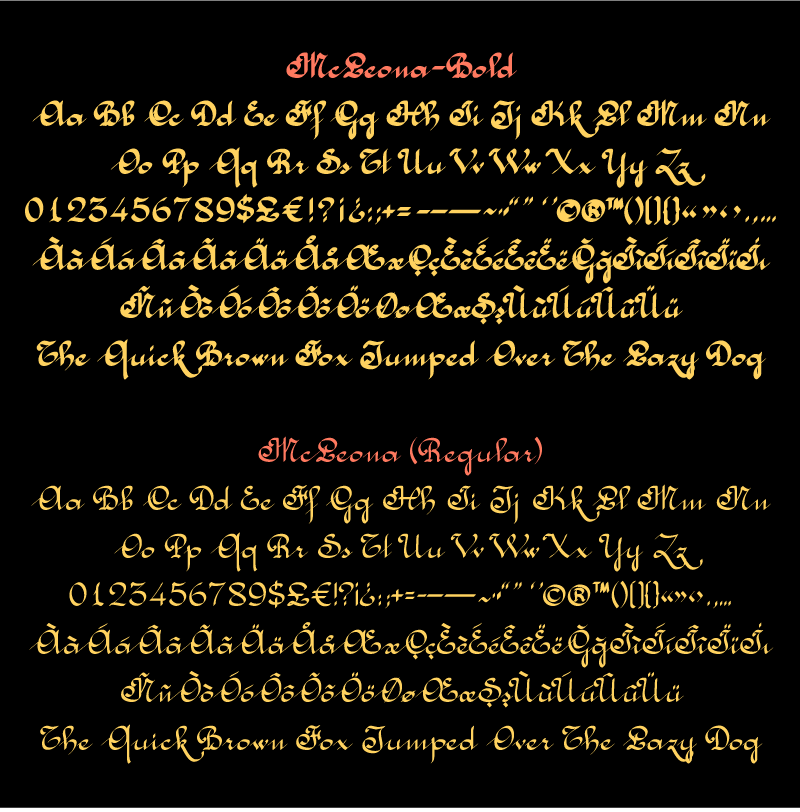 McLeona-Bold
Aa Bb Cc Dd Ee Ff Gg Hh Ii Jj Kk Ll Mm Nn
Oo Pp Qq Rr Ss Tt Uu Vv Ww Xx Yy Zz
0123456789$£€!?¡¿:;+=-–—~'"“”‘’©®™()[]{}«»‹›.,…
ÀàÁáÂâÃãÄäÅåÆæÇçÈèÉéÊêËëĞğÌìÍíÎîÏïİı
ÑñÒòÓóÔôÕõÖöØøŒœŞşÙùÚúÛûÜü
The Quick Brown Fox Jumped Over The Lazy Dog
McLeona (Regular)
Aa Bb Cc Dd Ee Ff Gg Hh Ii Jj Kk Ll Mm Nn
Oo Pp Qq Rr Ss Tt Uu Vv Ww Xx Yy Zz
0123456789$£€!?¡¿:;+=-–—~'"“”‘’©®™()[]{}«»‹›.,…
ÀàÁáÂâÃãÄäÅåÆæÇçÈèÉéÊêËëĞğÌìÍíÎîÏïİı
ÑñÒòÓóÔôÕõÖöØøŒœŞşÙùÚúÛûÜü
The Quick Brown Fox Jumped Over The Lazy Dog